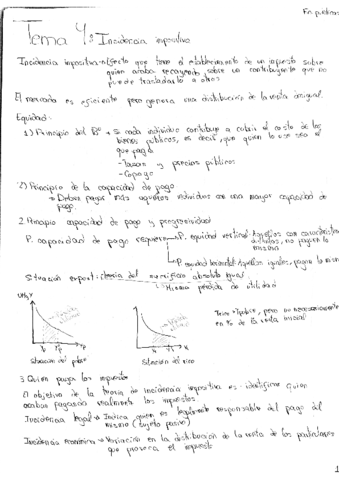 Fin. públicas
Tema 4: Incidencia impositiva
Incidencia impositiva→efecto que tiene el establecimiento de un impuesto sobre
quien acaba recayendo, sobre un contribuyente que no
puede trasladarlo a otros
El mercado es eficiente pero genera una distribución de la renta desigual.
Equidad:
1) Principio del Bº → Si cada individuo contribuye a cubrir el costo de los
bienes públicos, es decir, que quien lo use sea el
que paga
- Tasas y precios públicos
- Copago
2) Principio de la capacidad de pago
→ Deben pagar más aquellos individuos con una mayor capacidad de
pago.
2. Principio capacidad de pago y progresividad
P. capacidad de pago requiere → P. equidad vertical: Aquellos con características
distintas, no paguen lo
mismo
P. equidad horizontal: Aquellos iguales, pagan lo mismo
Situación export: teoría del sacrificio absoluto igual.
→ Misma pérdida de utilidad
UMg Y
Situación del pobre
Situación del rico
Trico > Tpobre, pero no necesariamente
en % de la renta inicial
3. Quien paga los impuestos
El objetivo de la teoría de incidencia impositiva es identificar quien
acaba pagando realmente los impuestos.
Incidencia legal → Indica quien es legalmente responsable del pago del
mismo (sujeto pasivo)
Incidencia económica → Variación en la distribución de la renta de los particulares
que provoca el impuesto
1